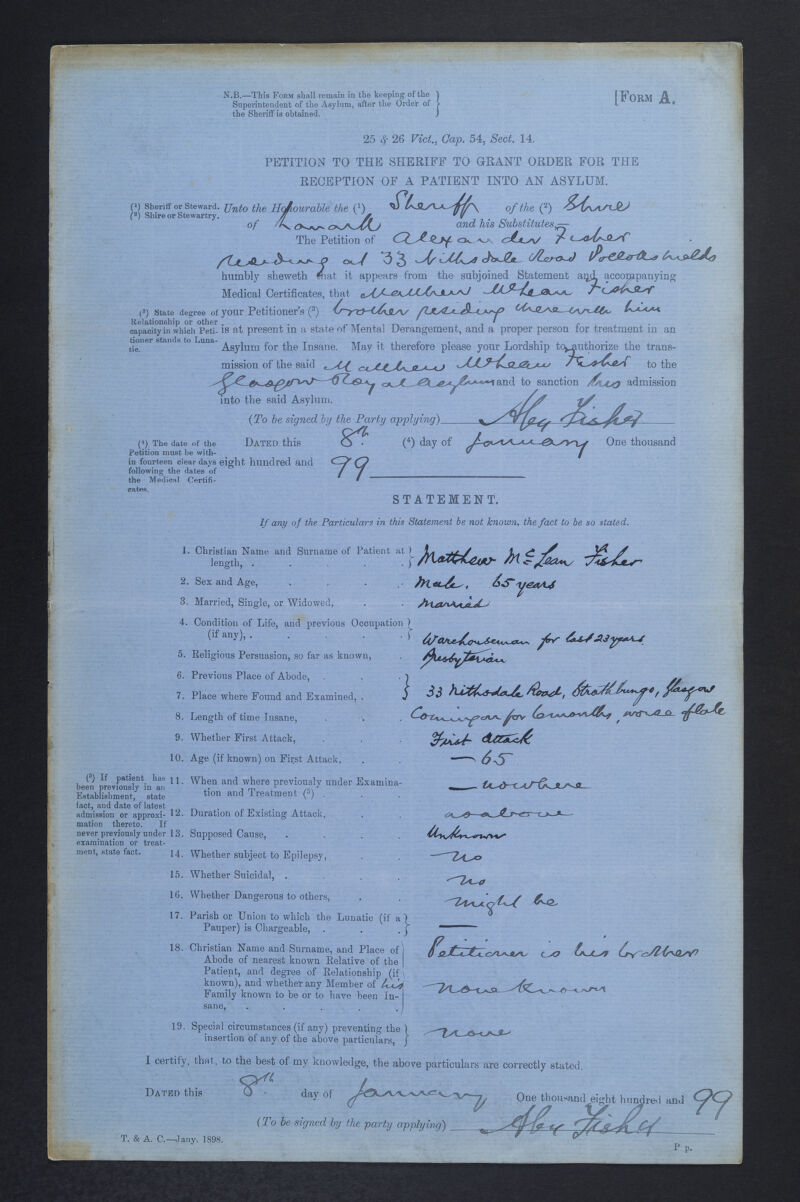 N.B.—This Form shall remain in the keeping of the
Superintendent of the Asylum, after the Order of
the Sheriff is obtained.
[Form A.
25 & 26 Vict., Cap. 54, Sect. 14.
PETITION TO THE SHERIFF TO GRANT ORDER FOR THE
RECEPTION OF A PATIENT INTO AN ASYLUM.
(1) Sheriff or Steward.
(2) Shire or Stewartry.
Unto the Honourable the (1) Sheriff of the (2) Shire
of Lanark and his Substitutes,—
The Petition of Alexander Fisher
residing at 33 Nithsdale Road Pollokshields
humbly sheweth that it appears from the subjoined Statement and accompanying
Medical Certificates, that Matthew McLean Fisher
(3) State degree of
Relationship or other
capacity in which Peti-
tioner stands to Luna-
tic.
your Petitioner's (3) brother residing there with him
is at present in a state of Mental Derangement, and a proper person for treatment in an
Asylum for the Insane. May it therefore please your Lordship to authorize the trans-
mission of the said Matthew McLean Fisher to the
Glasgow Royal Asylum and to sanction his admission
into the said Asylum.
(To be signed by the Party applying) Alex Fisher
(4) The date of the
Petition must be with-
in fourteen clear days
following the dates of
the Medical Certifi-
cates.
Dated this 8th (4) day of January One thousand
eight hundred and 99
STATEMENT.
If any of the Particulars in this Statement be not known, the fact to be so stated.
1. Christian Name and Surname of Patient at
length, . Matthew McLean Fisher
2. Sex and Age, Male. 65 years
3. Married, Single, or Widowed, Married
4. Condition of Life, and previous Occupation
(if any), . Warehouseman for last 23 years
5. Religious Persuasion, so far as known, Presbyterian
6. Previous Place of Abode, .
7. Place where Found and Examined, . 33 Nithsdale Road, Strathbungo, Glasgow
8. Length of time Insane, Coming on for 6 months, worse of late
9. Whether First Attack, First Attack
10. Age (if known) on First Attack, — 65
(5) If patient has
been previously in an
Establishment, state
fact, and date of latest
admission or approxi-
mation thereto. If
never previously under
examination or treat-
ment, state fact.
11. When and where previously under Examina-
tion and Treatment (5) — nowhere
12. Duration of Existing Attack, as above
13. Supposed Cause, Unknown
14. Whether subject to Epilepsy, — No
15. Whether Suicidal, . No
16. Whether Dangerous to others, might be
17. Parish or Union to which the Lunatic (if a
Pauper) is Chargeable, . —
18. Christian Name and Surname, and Place of
Abode of nearest known Relative of the
Patient, and degree of Relationship (if
known), and whether any Member of his
Family known to be or to have been In-
sane,
Petitioner is his brother
none known
19. Special circumstances (if any) preventing the
insertion of any of the above particulars, none
I certify, that, to the best of my knowledge, the above particulars are correctly stated.
Dated this 8th day of January One thousand eight hundred and 99
(To be signed by the party applying) Alex Fisher
T. & A. C.—Jany. 1898.
P p.